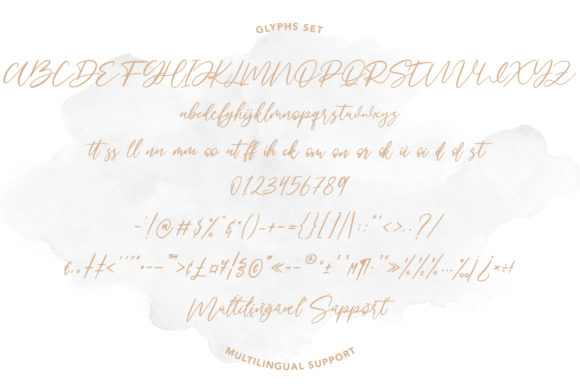 GLYPHS SET
ABCDEFGHIJKLMNOPQRSTUVWXYZ
abcdefghijklmnopqrstuvwxyz
tt ss ll nn mm oo at ff ih ck om on or ok ii oi d d st
0123456789
~`!@#$%^&*()-+-={}[]|\::"'<>,.?/
Multilingual Support
MULTILINGUAL SUPPORT